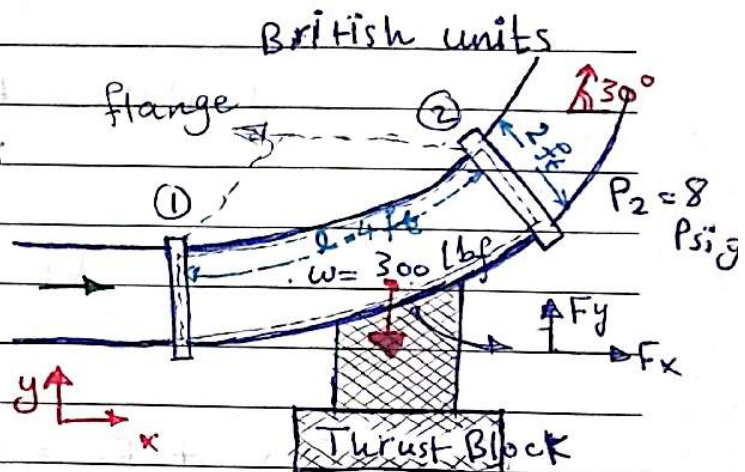 British units
flange
②
30°
2 ft
①
P₂ = 8
Psig
l=4ft
w= 300 lbf
Fy
Fx
y
x
Thrust Block